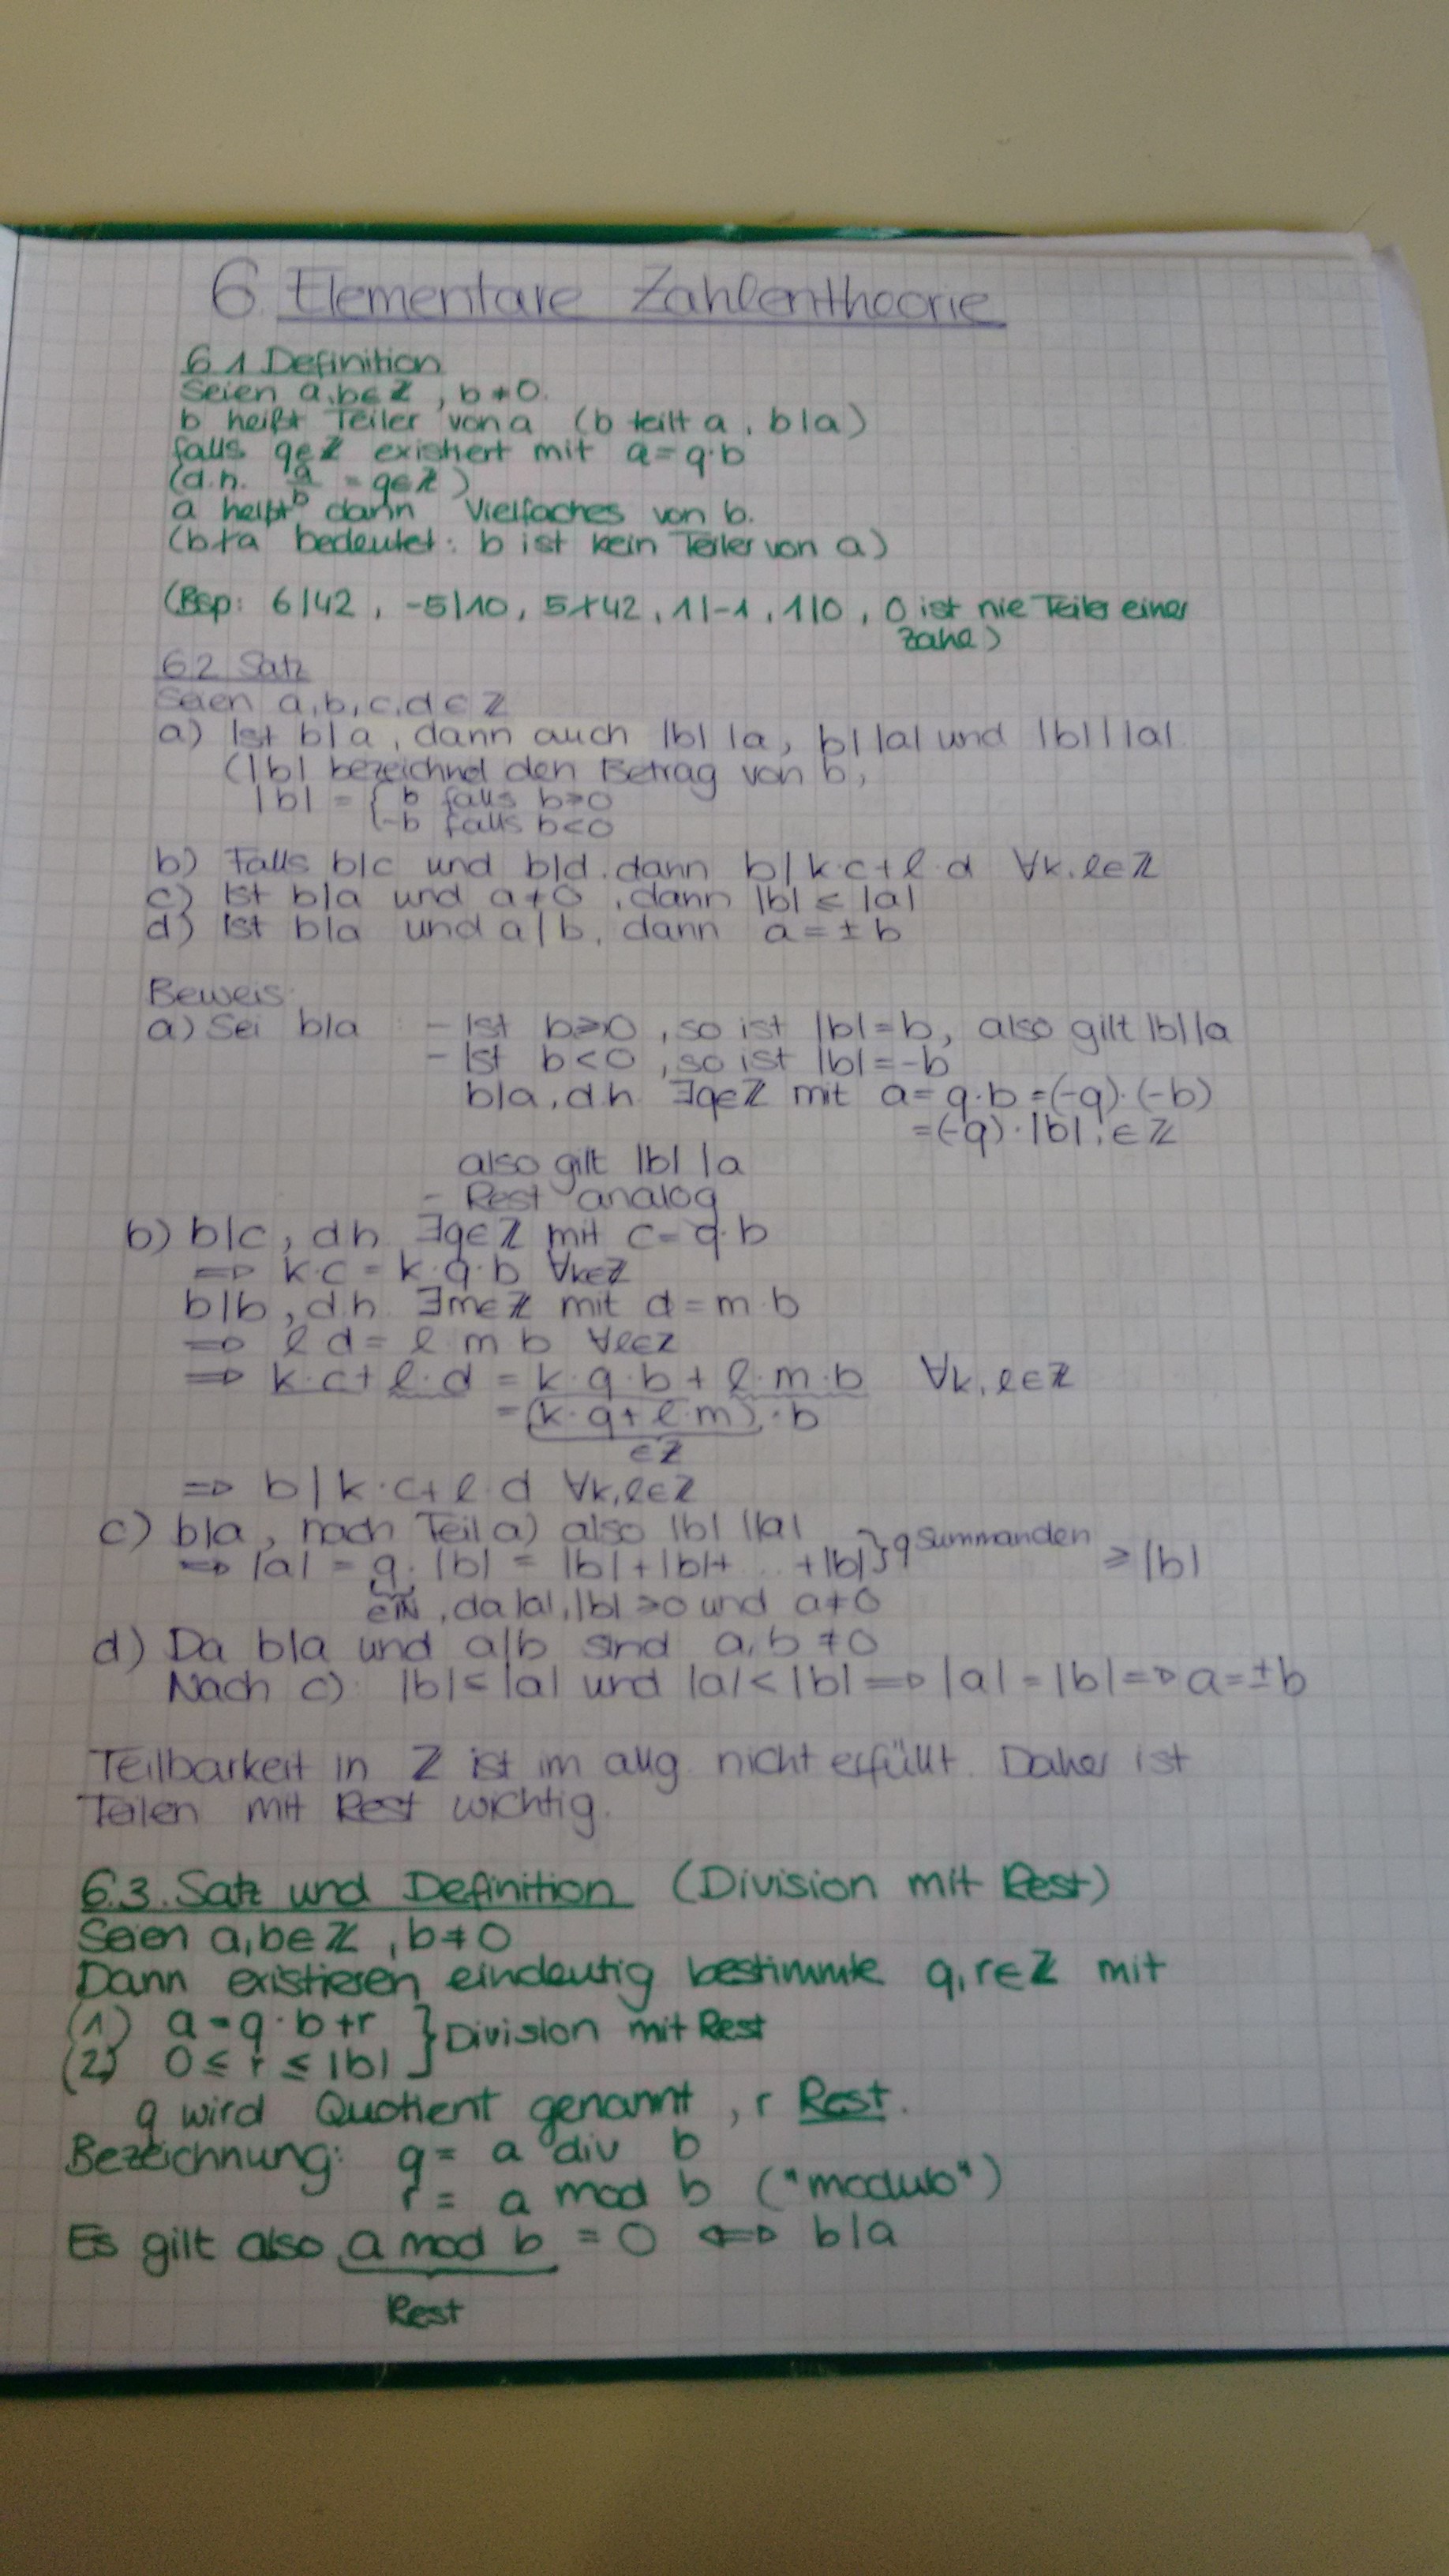 6. Elementare Zahlentheorie
6.1 Definition
Seien a,b∈ℤ, b≠0.
b heißt Teiler von a (b teilt a, b|a)
falls q∈ℤ existiert mit a=q·b
(d.h. a/b = q∈ℤ)
a heißt dann Vielfaches von b.
(b∤a bedeutet: b ist kein Teiler von a)
(Bsp: 6|42, -5|10, 5∤42, 1|-1, 1|0, 0 ist nie Teiler einer
Zahl)
6.2 Satz
Seien a,b,c,d∈ℤ
a) Ist b|a, dann auch |b| |a, b| |a| und |b| | |a|.
(|b| bezeichnet den Betrag von b,
|b| = { b falls b≥0
{ -b falls b<0
b) Falls b|c und b|d, dann b|k·c+ℓ·d ∀k,ℓ∈ℤ
c) Ist b|a und a≠0, dann |b| ≤ |a|
d) Ist b|a und a|b, dann a=±b
Beweis:
a) Sei b|a : - Ist b≥0, so ist |b|=b, also gilt |b||a
- Ist b<0, so ist |b|=-b
b|a, d.h. ∃q∈ℤ mit a=q·b=(-q)·(-b)
=(-q)·|b|, ∈ℤ
also gilt |b| |a
- Rest analog
b) b|c, d.h. ∃q∈ℤ mit c=q·b
⇒ k·c = k·q·b ∀k∈ℤ
b|b, d.h. ∃m∈ℤ mit d=m·b
⇒ ℓ·d = ℓ·m·b ∀ℓ∈ℤ
⇒ k·c+ℓ·d = k·q·b + ℓ·m·b ∀k,ℓ∈ℤ
=(k·q+ℓ·m)·b
∈ℤ
⇒ b|k·c+ℓ·d ∀k,ℓ∈ℤ
c) b|a, nach Teil a) also |b| ||a|
⇒ |a| = q·|b| = |b|+|b|+ ... +|b| } q Summanden ≥|b|
∈ℕ, da |a|,|b| ≥0 und a≠0
d) Da b|a und a|b sind a,b ≠0
Nach c): |b|≤|a| und |a|<|b| ⇒ |a|=|b| ⇒ a=±b
Teilbarkeit in ℤ ist im allg. nicht erfüllt. Daher ist
Teilen mit Rest wichtig.
6.3. Satz und Definition (Division mit Rest)
Seien a,b∈ℤ, b≠0
Dann existieren eindeutig bestimmte q,r∈ℤ mit
(1) a=q·b+r } Division mit Rest
(2) 0≤r≤|b|
q wird Quotient genannt, r Rest.
Bezeichnung: q= a div b
r= a mod b ("modulo")
Es gilt also a mod b = 0 ⇔ b|a
Rest